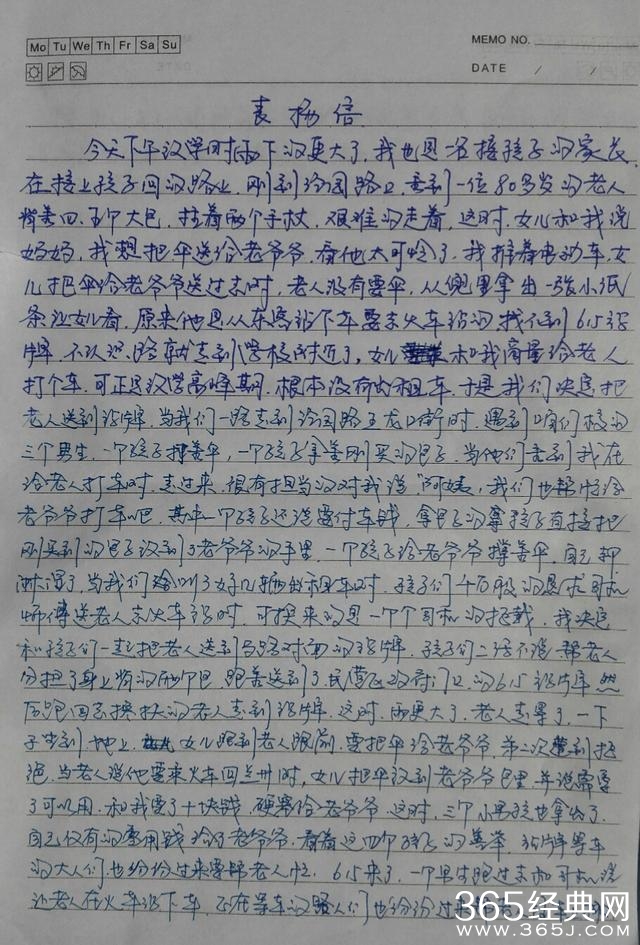 Mo Tu We Th Fr Sa Su
MEMO NO.
DATE / /
表扬信
今天下午放学时雨下的更大了，我也是一名接孩子的家长
在接上孩子回的路上，刚到公园路口，看到一位80多岁的老人
背着四、五个大包，拄着两个手杖，艰难的走着，这时，女儿和我说
妈妈，我想把伞送给老爷爷，看他太可怜了，我推着电动车，女
儿把伞给老爷爷送过去时，老人没有要伞，从兜里拿出一张小纸
条让女儿看，原来他是从东客站下车要去火车站的找不到615站
牌，不认识路就走到学校附近了，女儿和我商量给老人
打个车，可正是放学高峰期，根本没有出租车，于是我们决定把
老人送到站牌，当我们一路走到公园路五龙口街时，遇到咱们校的
三个男生，一个孩子撑着伞，一个孩子拿着刚买的包子，当他们看到我在
给老人打车时，走过来，很有担当的对我说，"阿姨，我们也帮忙给
老爷爷打车吧，其中一个孩子还说要付车钱，拿包子的孩子直接把
刚买到的包子放到了老爷爷的手里，一个孩子给老爷爷撑着伞，自己却
淋湿了，当我们叫了好几辆出租车时，孩子们千万般的恳求司机
师傅送老人去火车站时，可换来的是一个个司机的拒载，我决定
和孩子们一起把老人送到马路对面的站牌，孩子们二话不说帮老人
分担了身上背的两个包，跟着送到了民营区政府门口的615站牌然
后跑回来搀扶的老人走到站牌，这时，雨更大了，老人走累了，一下
子坐到地上，女儿跑到老人跟前，要把伞给老爷爷，第二次遭到拒
绝，当老人说他要乘火车回兰州时，女儿把伞放到老爷爷包里，并说需要
了可以用，和我要了十块钱，硬塞给老爷爷，这时，三个小男孩也拿出了
自己仅有的零用钱给了老爷爷，看着这四个孩子的善举，站牌等车
的大人们也纷纷过来要帮老人忙，615来了，一个男生跑过去和司机说
让老人在火车站下车，正在等车的路人们也纷纷过
365经典网
WWW.365JS.COM